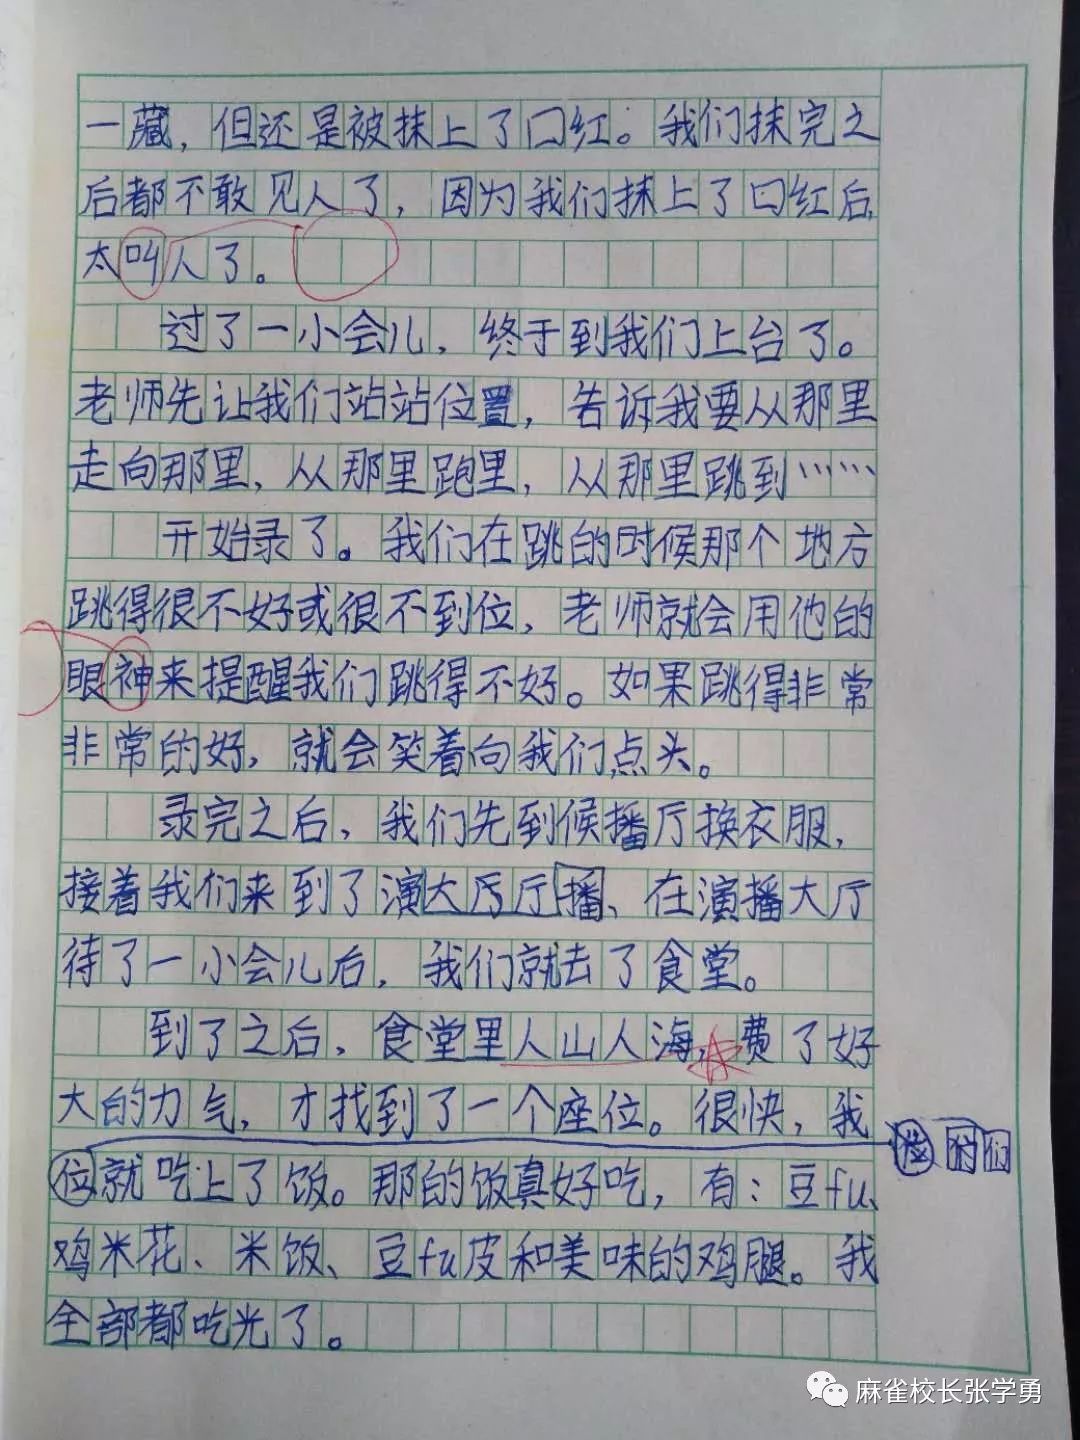 一藏，但还是被抹上了口红。我们抹完之
后都不敢见人了，因为我们抹上了口红后，
太叫人了。
过了一小会儿，终于到我们上台了。
老师先让我们站站位置，告诉我要从那里
走向那里，从那里跑里，从那里跳到……
开始录了。我们在跳的时候那个地方
跳得很不好或很不到位，老师就会用他的
眼神来提醒我们跳得不好。如果跳得非常
非常的好，就会笑着向我们点头。
录完之后，我们先到候播厅换衣服，
接着我们来到了演大厉厅播、在演播大厅
待了一小会儿后，我们就去了食堂。
到了之后，食堂里人山人海，费了好
大的力气，才找到了一个座位。很快，我
们
位就吃上了饭。那的饭真好吃，有：豆fu、
鸡米花、米饭、豆fu皮和美味的鸡腿。我
全部都吃光了。
麻雀校长张学勇